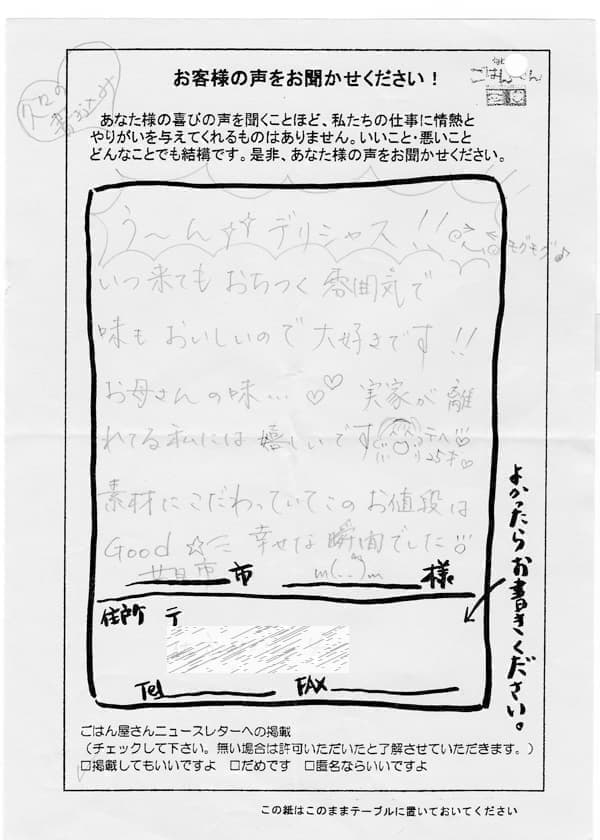 お客様の声をお聞かせください！
ごはんやさん
久々の
書き込み
あなた様の喜びの声を聞くことほど、私たちの仕事に情熱と
やりがいを与えてくれるものはありません。いいこと・悪いこと
どんなことでも結構です。是非、あなた様の声をお聞かせください。
う～ん☆☆デリシャス!! モグモグ♪
いつ来てもおちつく雰囲気で
味もおいしいので大好きです!!
お母さんの味…♡♡ 実家が離
れてる私には嬉しいです テヘ 25才♡
素材にこだわっていてこのお値段は
Good☆ 幸せな瞬間でした
廿日市 市 m(..)m 様
住所 〒
Tel FAX
よかったらお書きください。
ごはん屋さんニュースレターへの掲載
（チェックして下さい。無い場合は許可いただいたと了解させていただきます。）
□掲載してもいいですよ □だめです □匿名ならいいですよ
この紙はこのままテーブルに置いておいてください